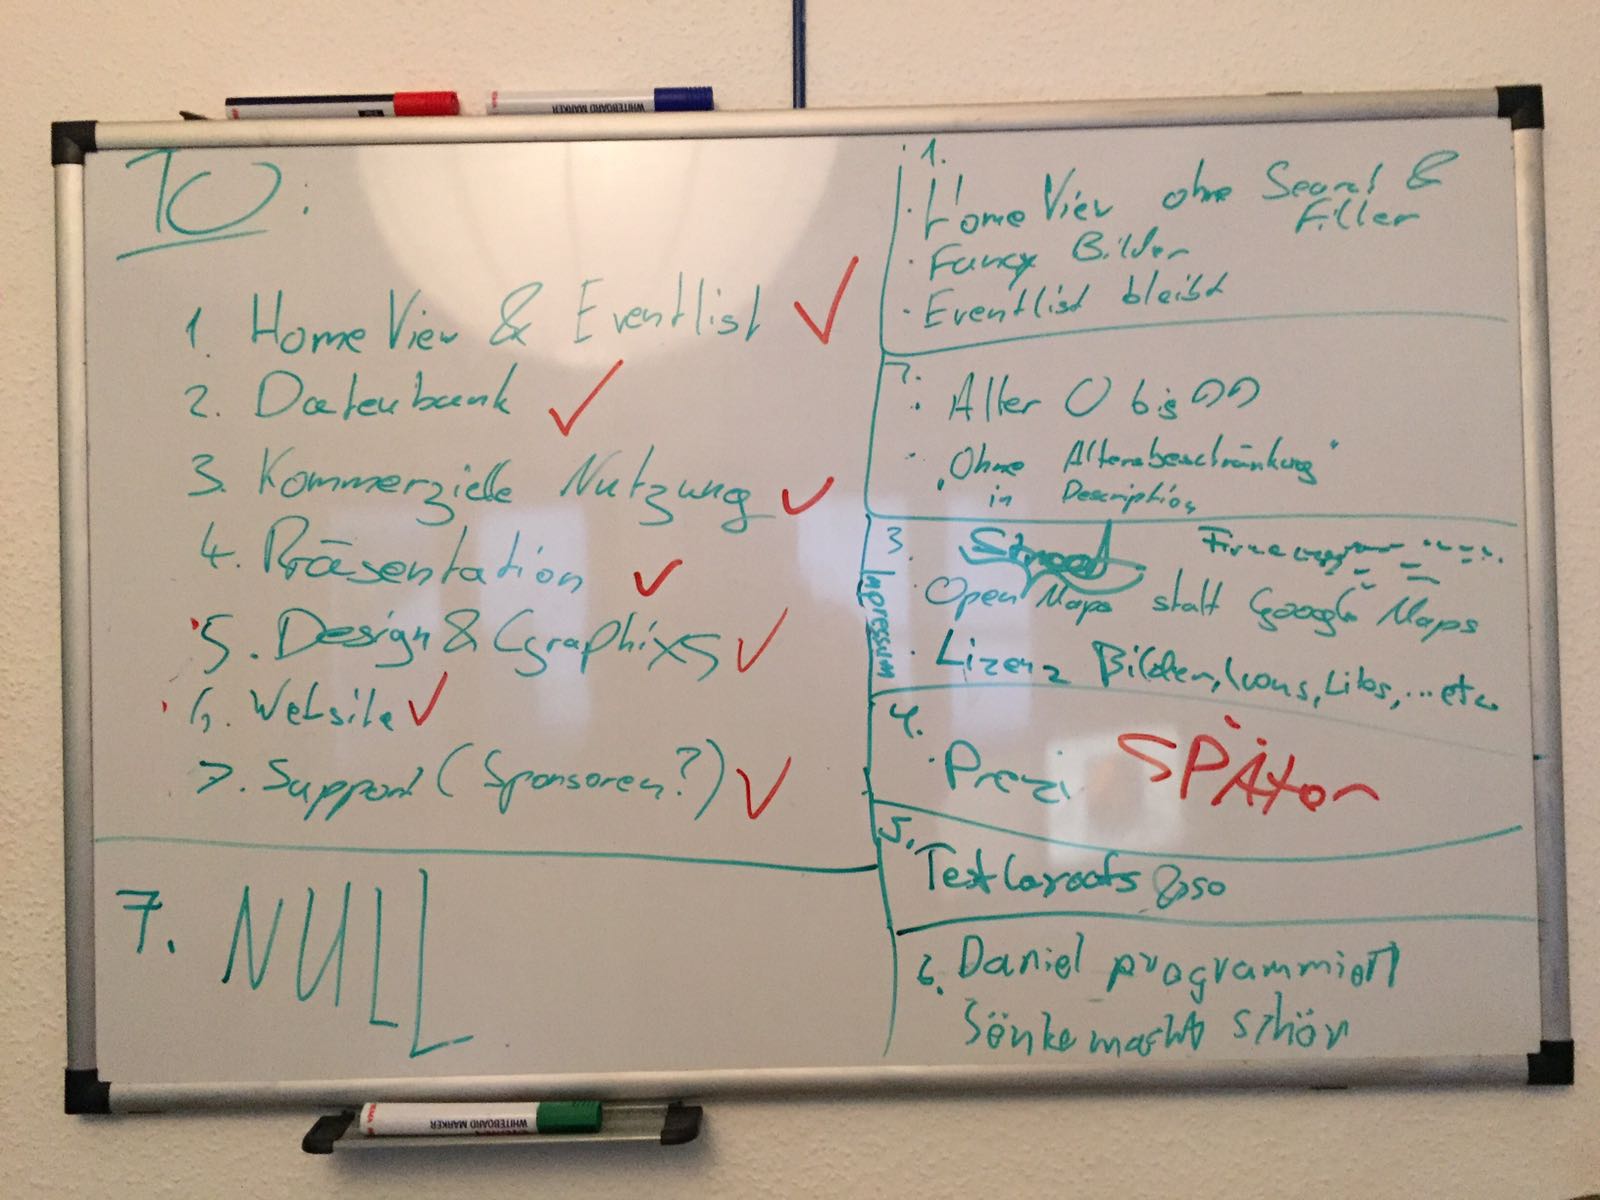 TO:
1. Home View & Eventlist ✓
2. Datenbank ✓
3. Kommerzielle Nutzung ✓
4. Präsentation ✓
5. Design & Graphixs ✓
6. Website ✓
7. Support (Sponsoren?) ✓
7. NULL
1.
· Home View ohne Search &
Filter
· Fancy Bilder
· Eventlist bleibt
2.
· Alter 0 bis 99
· „Ohne Altersbeschränkung"
in Description
3.
Impressum
· Open Maps statt Google Maps
· Lizenz Bilder, Icons, Libs, ... etc.
4.
· Prezi SPÄter
5.
Testlayouts & so
6. Daniel programmiert
Sönke macht schön
WHITEBOARD MARKER
WHITEBOARD MARKER